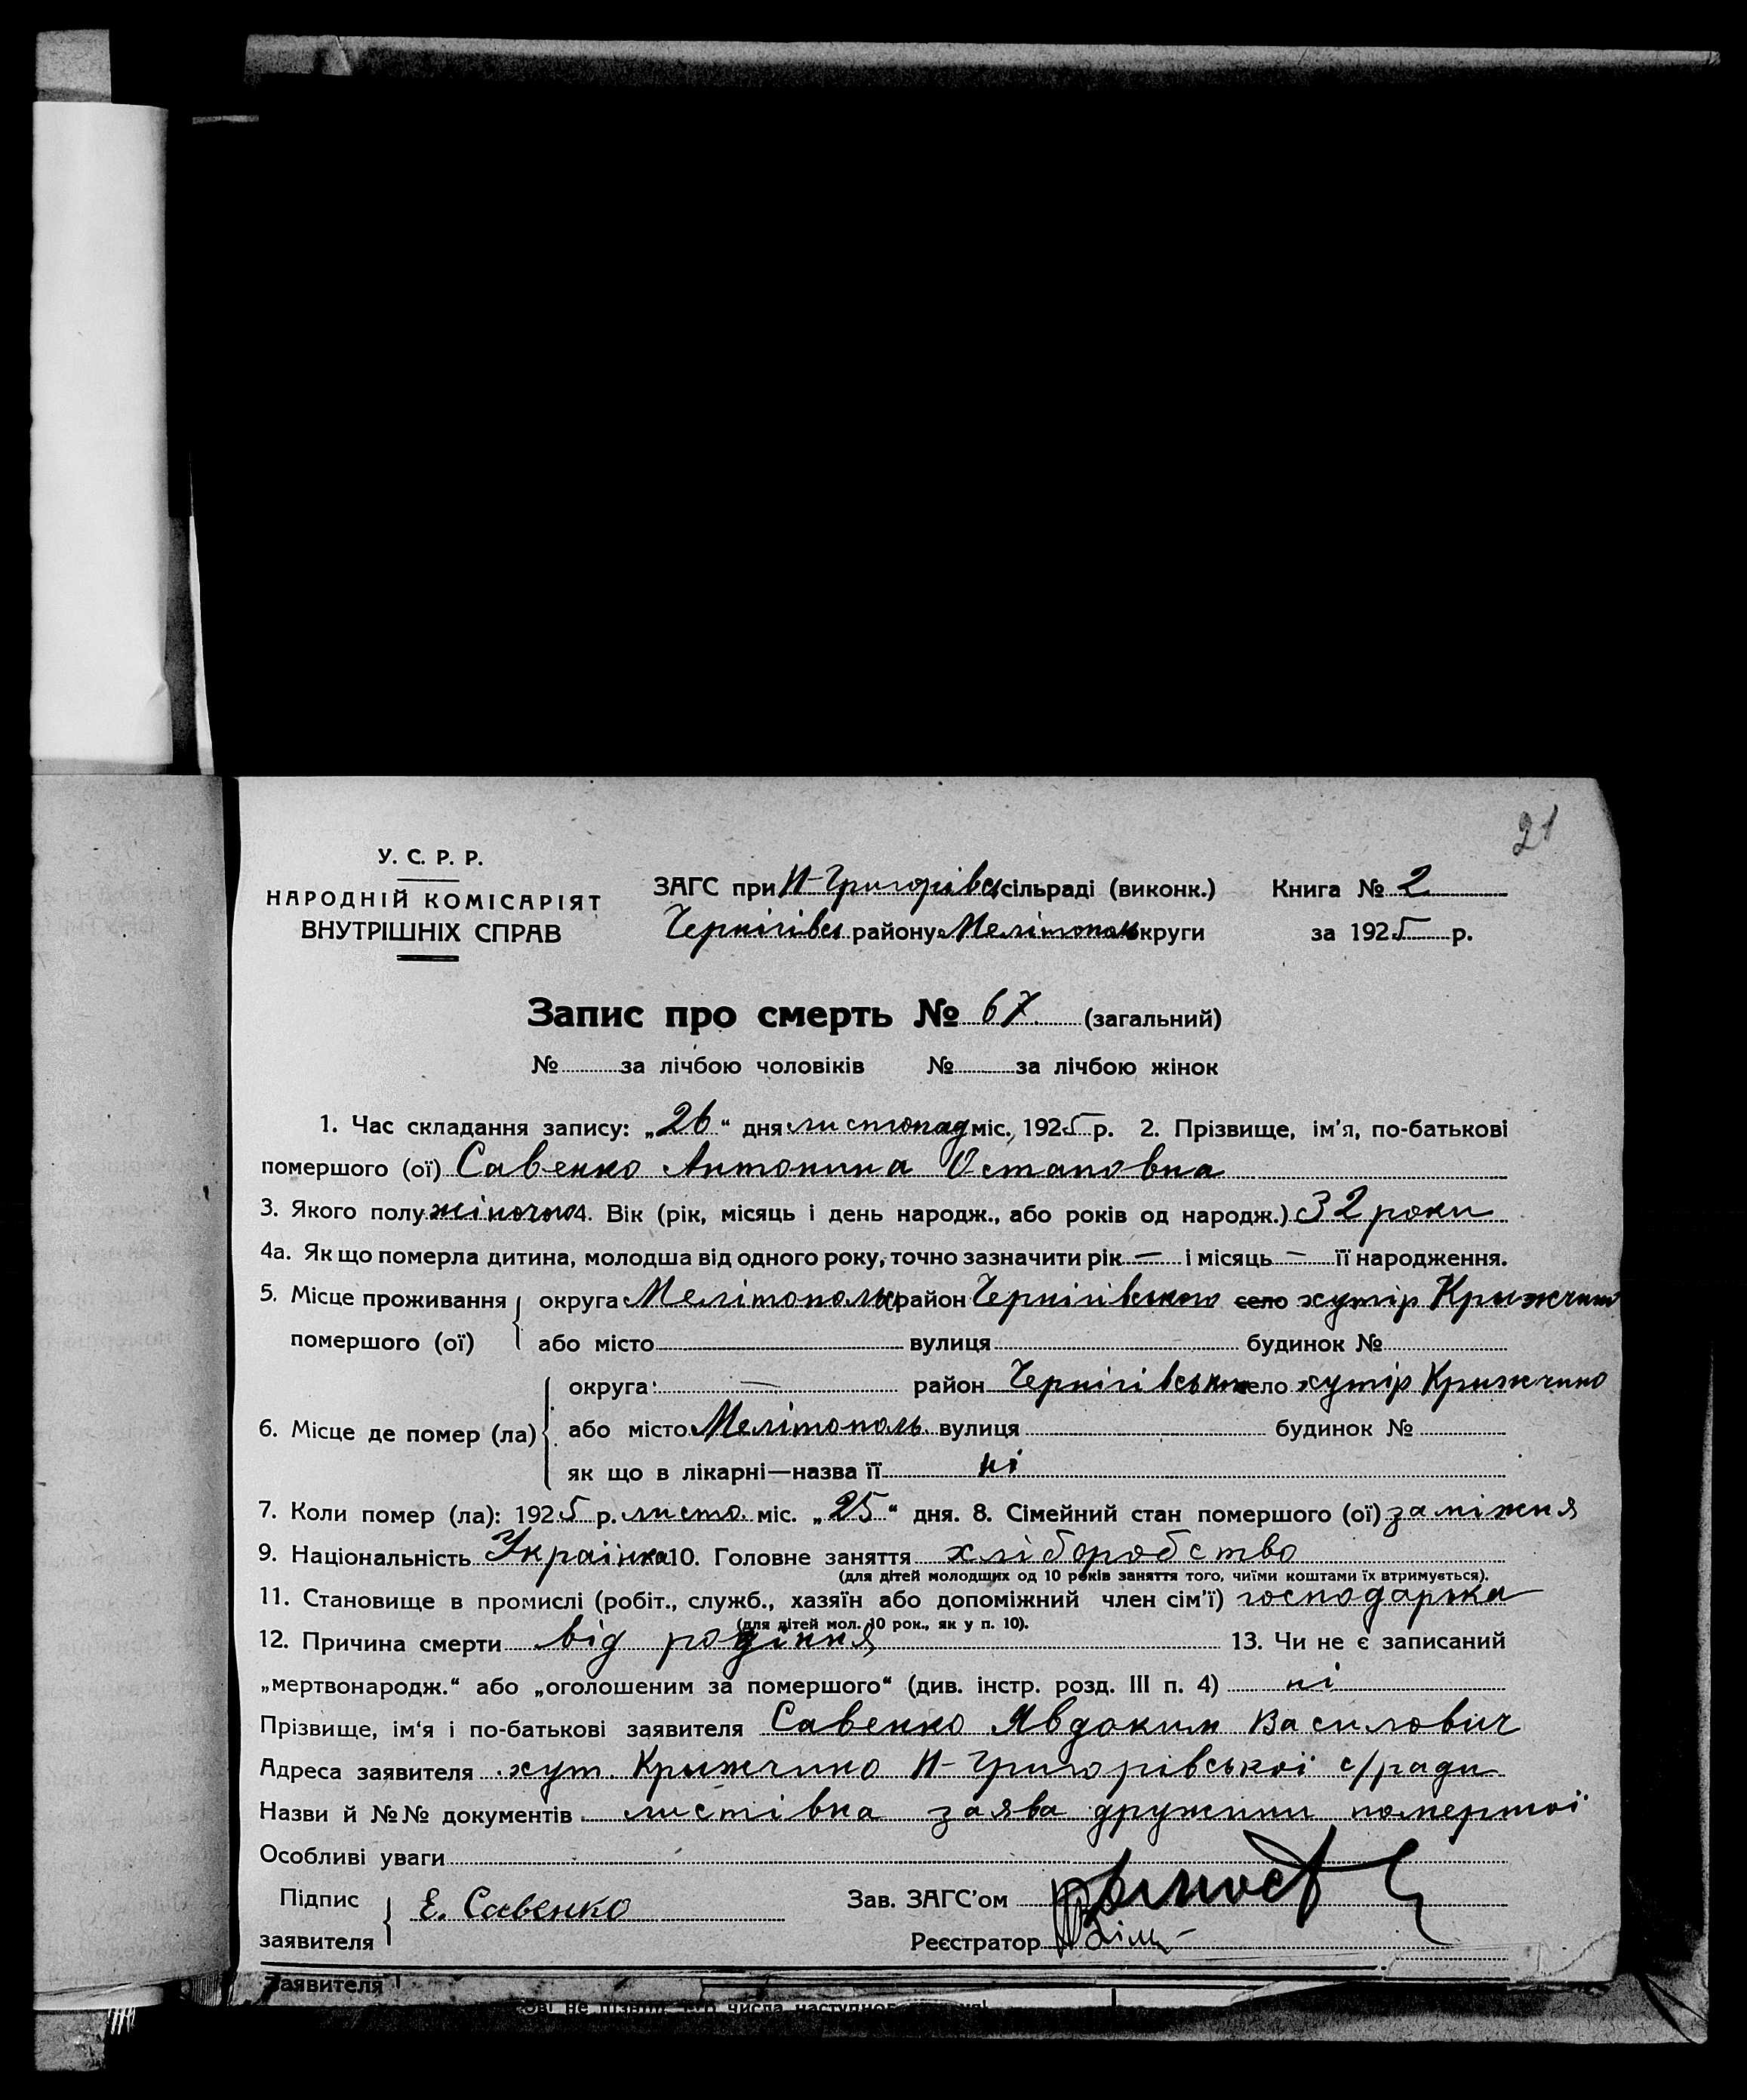 21
У. С. Р. Р.
НАРОДНІЙ КОМІСАРІЯТ
ВНУТРІШНІХ СПРАВ
ЗАГС при Н-Григорівсь сільраді (виконк.) Книга № 2
Чернігівсь району Мелітополь округи за 1925 р.
Запис про смерть № 67 (загальний)
№ за лічбою чоловіків № за лічбою жінок
1. Час складання запису: „26“ дня листопад міс., 1925 р. 2. Прізвище, ім'я, по-батькові
помершого (ої) Савенко Антонина Остаповна
3. Якого полу жіночого 4. Вік (рік, місяць і день народж., або років од народж.) 32 роки
4а. Як що померла дитина, молодша від одного року, точно зазначити рік — і місяць — її народження.
5. Місце проживання округа Мелітопольськ район Чернігівського село хутір Крыжчино
помершого (ої) або місто вулиця будинок №
округа: — район Чернігівського село хутір Крижчино
6. Місце де помер (ла) або місто Мелітополь вулиця будинок №
як що в лікарні—назва її ні
7. Коли помер (ла): 1925 р. листо. міс. „25“ дня. 8. Сімейний стан помершого (ої) заміжня
9. Національність Українка 10. Головне заняття хліборобство
(для дітей молодщих од 10 років заняття того, чиїми коштами їх втримується).
11. Становище в промислі (робіт., служб., хазяїн або допоміжний член сім'ї) господарка
(для дітей мол. 10 рок., як у п. 10).
12. Причина смерти від родіння 13. Чи не є записаний
„мертвонародж.“ або „оголошеним за помершого“ (див. інстр. розд. III п. 4) ні
Прізвище, ім'я і по-батькові заявителя Савенко Явдоким Василович
Адреса заявителя хут. Крыжчино Н-Григорівської с/ради
Назви й №№ документів листівна заява дружини помершої
Особливі уваги
Підпис Е. Савенко Зав. ЗАГС'ом
заявителя Реєстратор
Заявителя
числа наступного